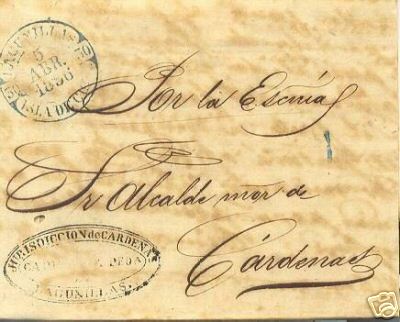 LAGUNILLAS
5
ABR.
1856
ISLA DE CUBA
Por la Escñia
Sr Alcalde mor de
Cárdenas
JURISDICCION de CARDENAS
LAGUNILLAS.